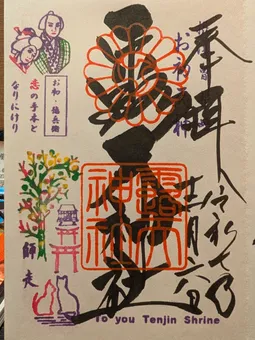 奉拝
お初天神
露天神社
令和七年
十二月
露天
神社
お初・徳兵衛
恋の手本と
なりにけり
師走
To you Tenjin Shrine